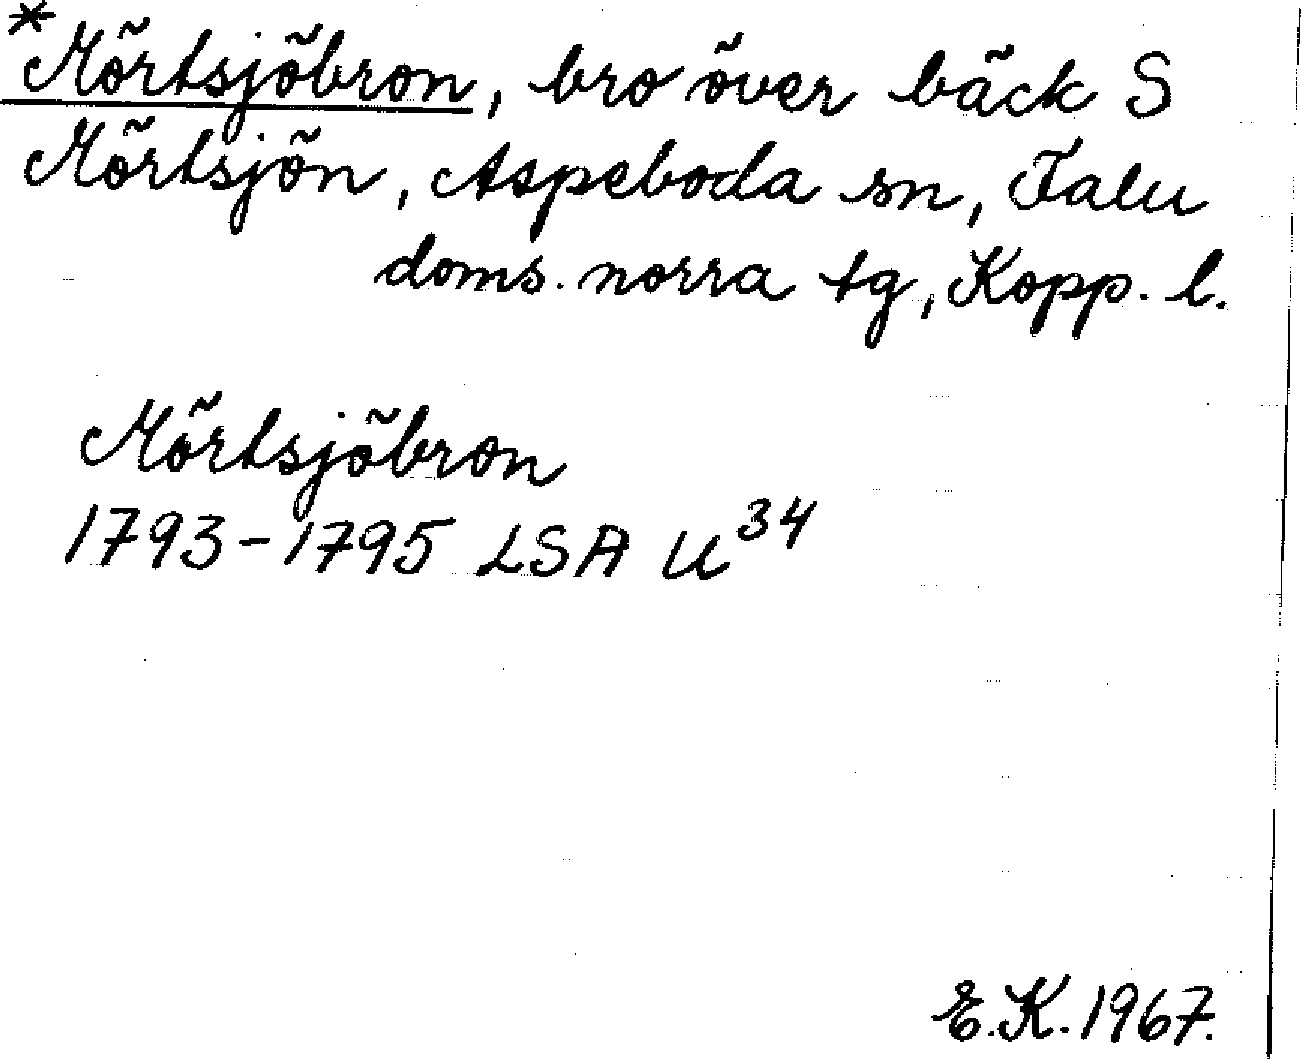 *Mörtsjöbron, bro över bäck S
Mörtsjön, Aspeboda sn, Falu
doms. norra tg, Kopp. l.
Mörtsjöbron
1793-1795 LSA U³⁴
E.K. 1967.